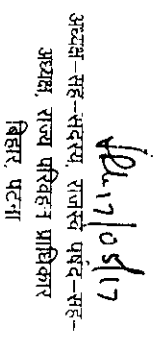 17/05/17
अध्यक्ष-सह-सदस्य, राजस्व पर्षद-सह-
अध्यक्ष, राज्य परिवहन प्राधिकार
बिहार, पटना